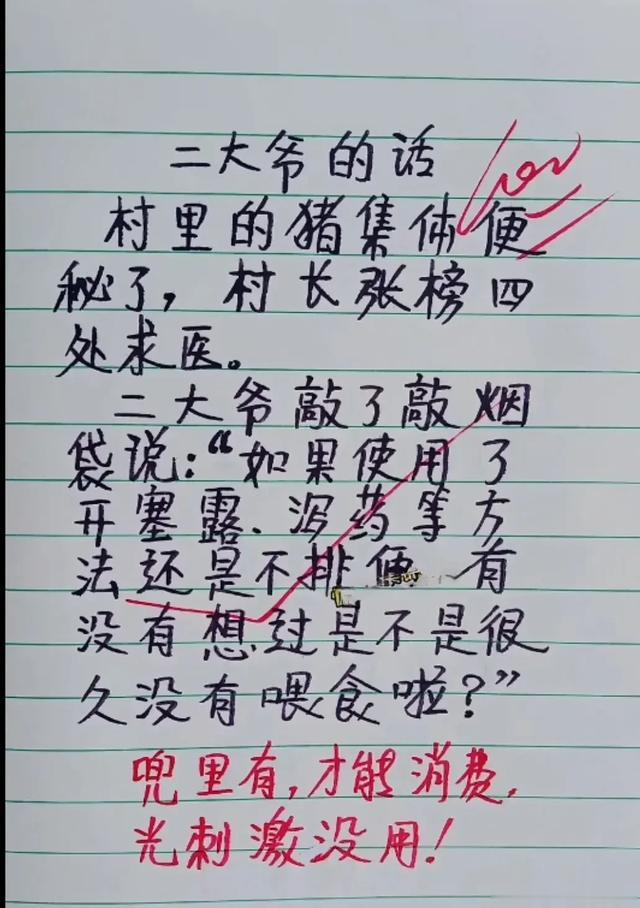 二大爷的话
村里的猪集体便
秘了，村长张榜四
处求医。
二大爷敲了敲烟
袋说：“如果使用了
开塞露、泻药等方
法还是不排便 有
没有想过是不是很
久没有喂食啦？”
兜里有，才能消费，
光刺激没用！